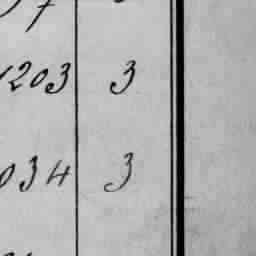 1203 3
034 3